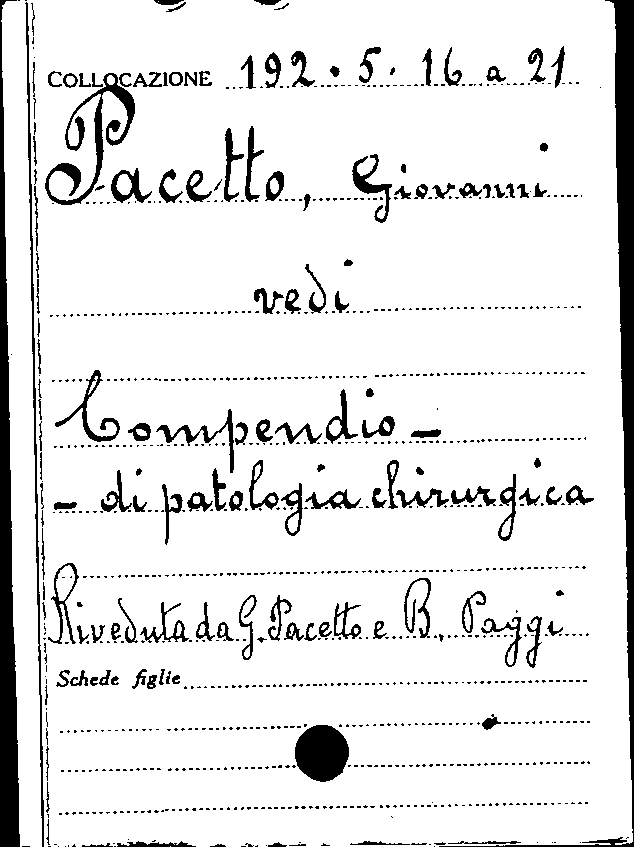 COLLOCAZIONE 192.5.16 a 21
Pacetto, Giovanni
vedi
Compendio -
- di patologia chirurgica
Riveduta da G. Pacetto e B. Paggi
Schede figlie